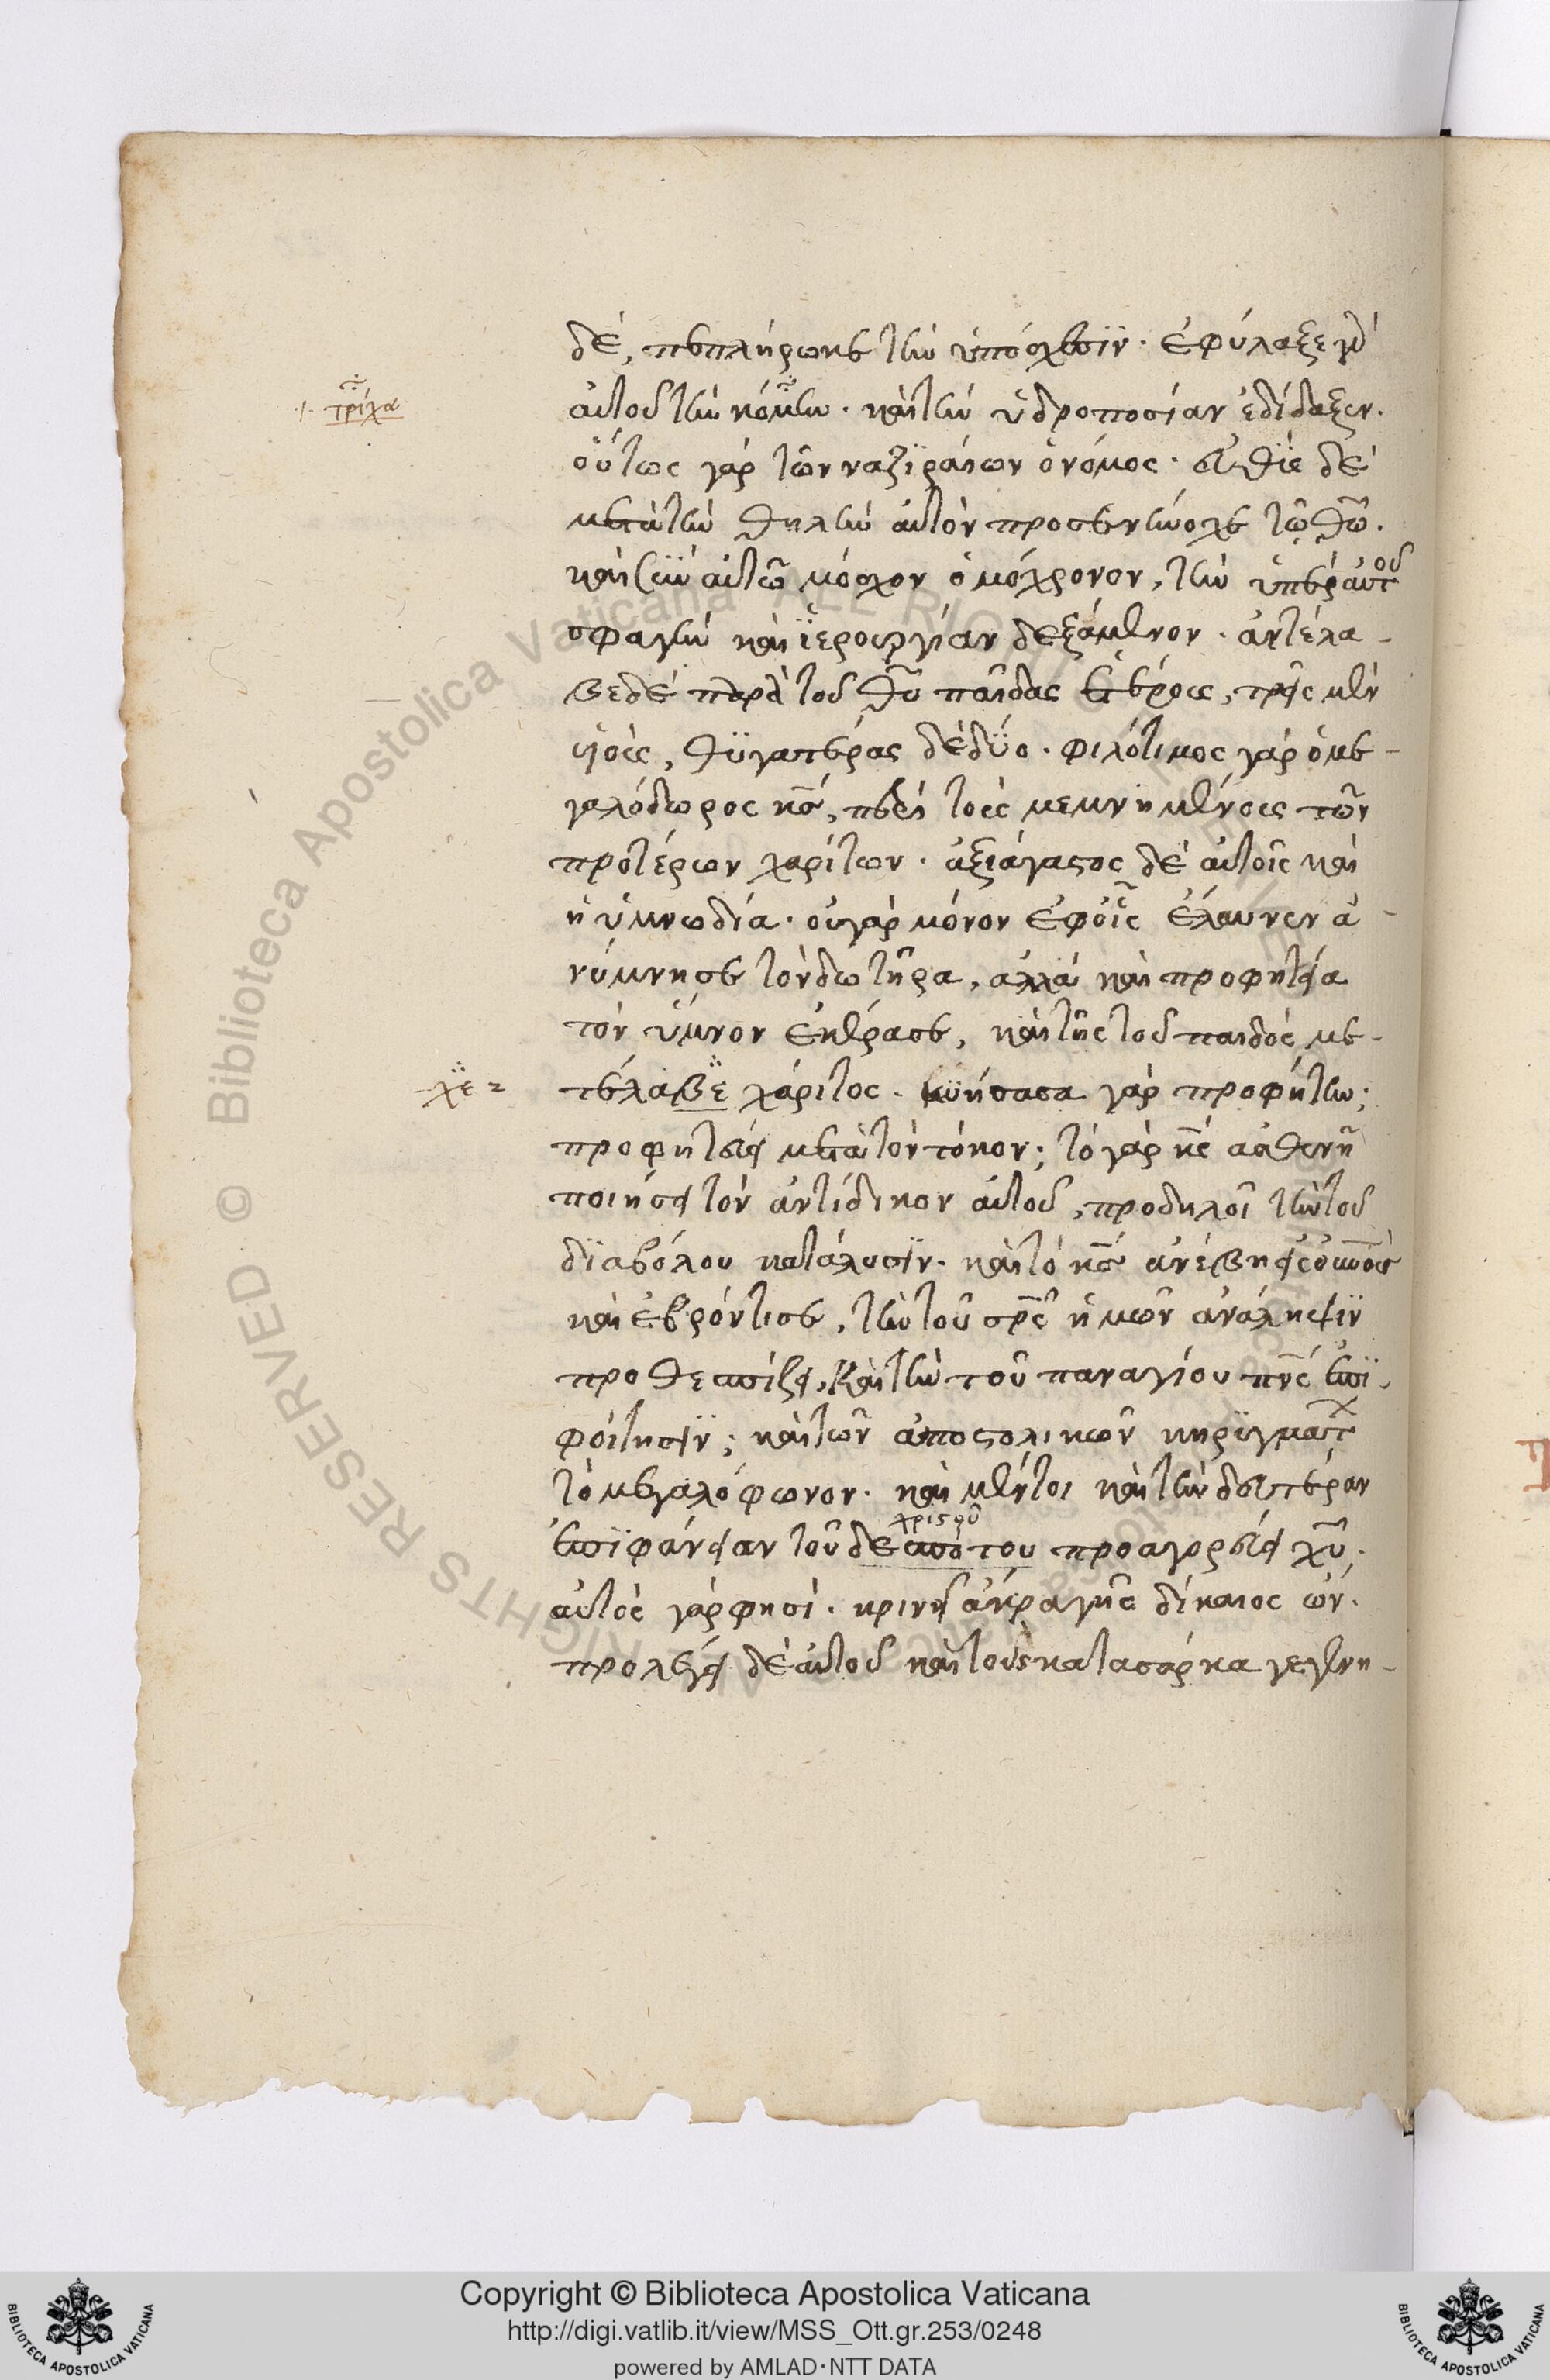 δέ, πεπλήρωκε τὴν ὑπόσχεσϊν· ἐφύλαξε γὰρ
·/· τρίχα
αὐτοῦ τὴν κόμην· καὶ τὴν ὑδροποσίαν ἐδίδαξεν.
οὕτως γὰρ τῶν ναζϊραίων ὁ νόμος· εὐθϊς δὲ
μετὰ τὴν θηλὴν αὐτὸν προσενήνοχε τῷ θῶ.
καὶ σὺν αὐτῶ μόσχον ὁμόχρονον, τὴν ὑπὲρ αὐτοῦ
σφαγὴν καὶ ϊερουργίαν δεξάμενον· ἀντέλα-
βε δὲ παρὰ τοῦ θῦ παῖδας ἑτέρους, τρεῖς μὲν
υἱοὺς, θϋγατέρας δὲ δϋο· φιλότιμος γὰρ ὁ με-
γαλόδωρος κς, περὶ τοὺς μεμνημένους τῶν
προτέρων χαρίτων· ἀξιάγαστος δὲ αὐτοῖς καὶ
ἡ ὑμνωδία· οὐ γὰρ μόνον ἐφ οἷς ἔλαυνεν ἀ-
νύμνησε τὸν δωτῆρα, αλλὰ καὶ προφητεία
τὸν ὕμνον ἐκέρασε, καὶ τῆς τοῦ παιδὸς με-
χε =
τέλαβε χάριτος· κϋήσασα γὰρ προφήτην;
προφητεύει μετὰ τὸν τόκον; τὸ γὰρ κς ἀσθενῆ
ποιήσει τὸν ἀντίδικον αὐτοῦ, προδηλοῖ τὴν τοῦ
δϊαβόλου κατάλυσϊν· καὶ τὸ κς ἀνέβη εἰς οὐνοὺς
καὶ ἐβρόντισε, τὴν τοῦ σρς ἡμῶν ἀνάληψϊν
προθεσπίζει, καὶ τὴν τοῦ παναγίου πνς ἐπϊ-
φοίτησϊν; καὶ τῶν ἀποστολικῶν κηρϋγμάτων
τὸ μεγαλόφωνον· καὶ μέντοι καὶ τὴν δευτέραν
χριστοῦ
ἐπϊφάνειαν τοῦ δεσπότου προαγορεύει χῦ·
αὐτὸς γὰρ φησὶ· κρινεῖ ἄκρα γῆς δίκαιος ὤν.
προλέγει δὲ αὐτοῦ καὶ τοὺς κατα σάρκα γεγενη-
Copyright © Biblioteca Apostolica Vaticana
http://digi.vatlib.it/view/MSS_Ott.gr.253/0248
powered by AMLAD·NTT DATA